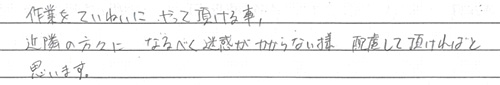 作業をていねいにやって頂ける事,
近隣の方々に なるべく迷惑がかからない様 配慮して頂ければと
思います。